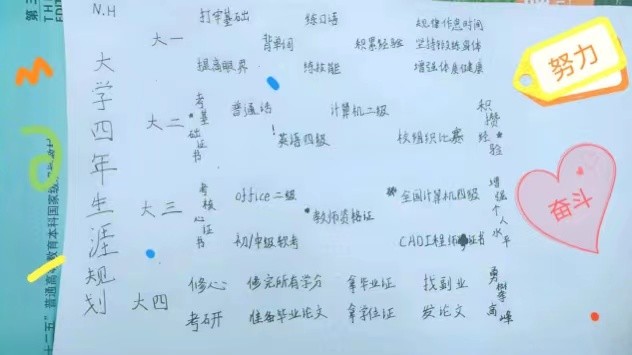 N.H
大学四年生涯规划
大一
打牢基础 练口语 规律作息时间
背单词 积累经验 坚持锻炼身体
提高眼界 练技能 增强体质健康
大二
考基础证书
普通话 计算机二级
英语四级 校组织比赛
积攒经验
大三
考核心证书
office二级 全国计算机四级
教师资格证
初/中级软考 CADI工程师证书
增强个人水平
大四
修心 修完所有学分 拿毕业证 找副业
考研 准备毕业论文 拿学位证 发论文
勇攀高峰
努力
奋斗
第三
THI
EDIT
十二五”普通高等教育本科国家级规划教材